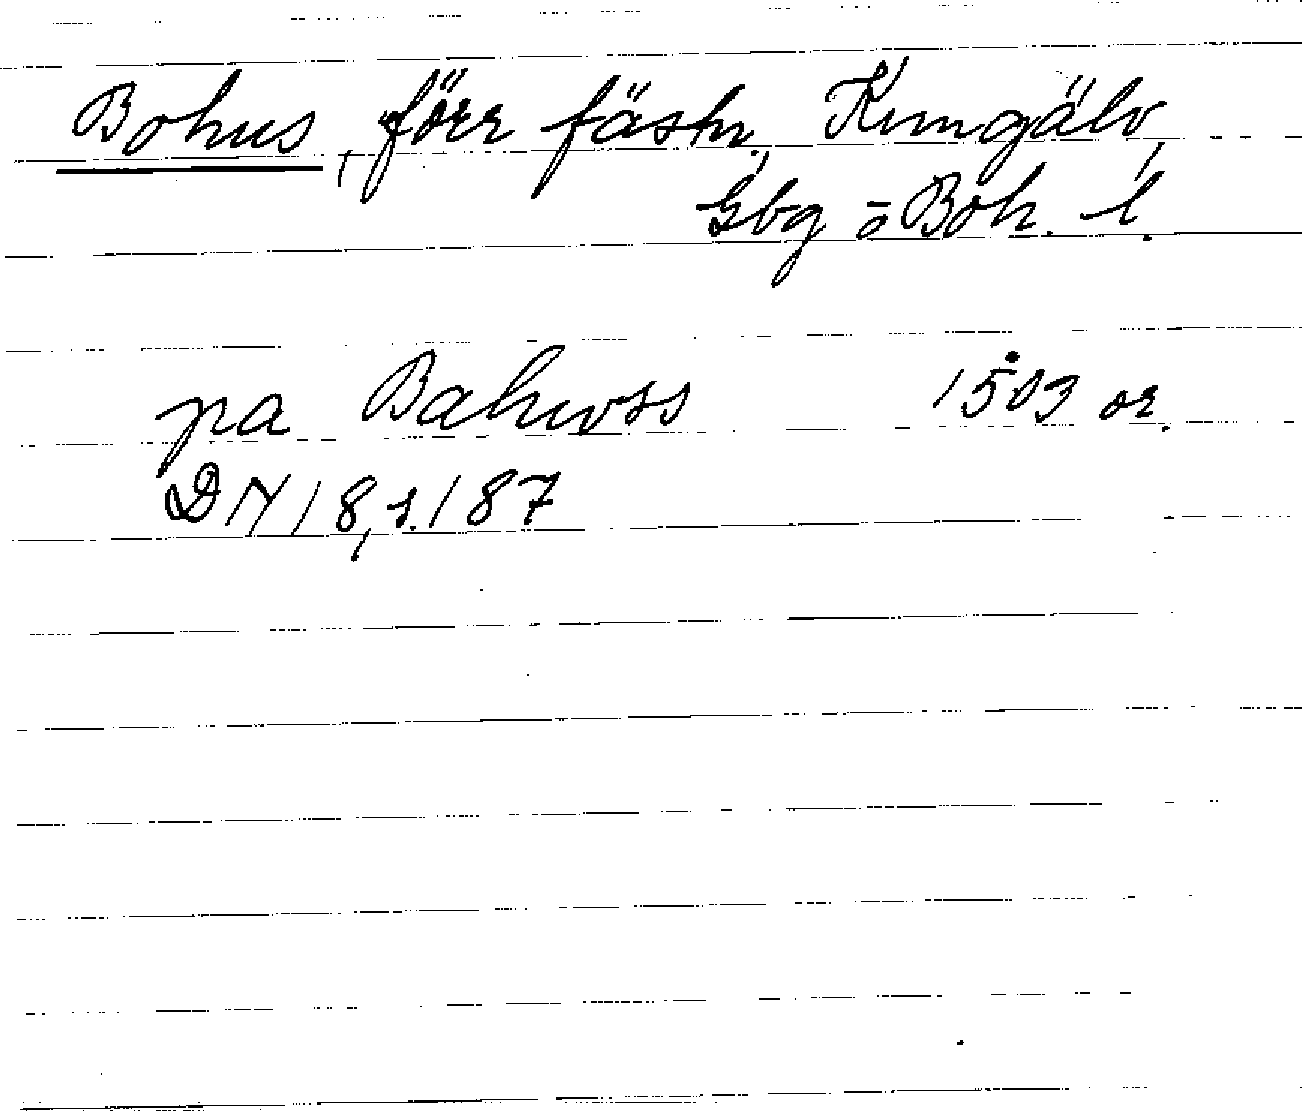 Bohus, förr fästn., Kungälv,
Gbg o Boh. l.
pa Bahwss 1503 or.
DN 18, s. 187